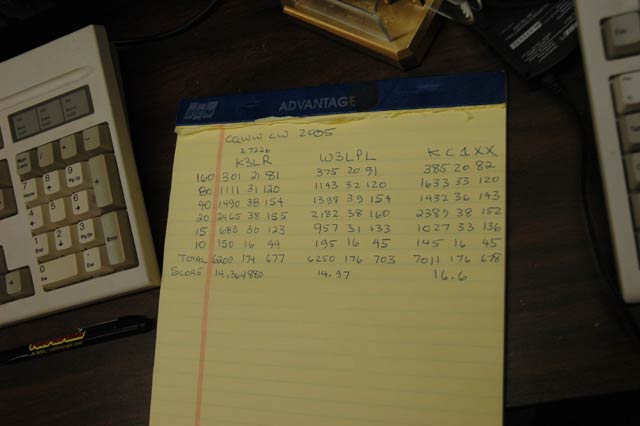 ADVANTAGE
CQWW CW 2005
3.7226
K3LR W3LPL KC1XX
160 301 21 81 375 20 91 385 20 82
80 1111 31 120 1143 32 120 1633 33 120
40 1490 38 154 1398 39 154 1432 36 143
20 2465 38 155 2182 38 160 2389 38 152
15 683 30 123 957 31 133 1027 33 136
10 150 16 44 195 16 45 145 16 45
TOTAL 6200 174 677 6250 176 703 7011 176 678
SCORE 14,364880 14.97 16.6